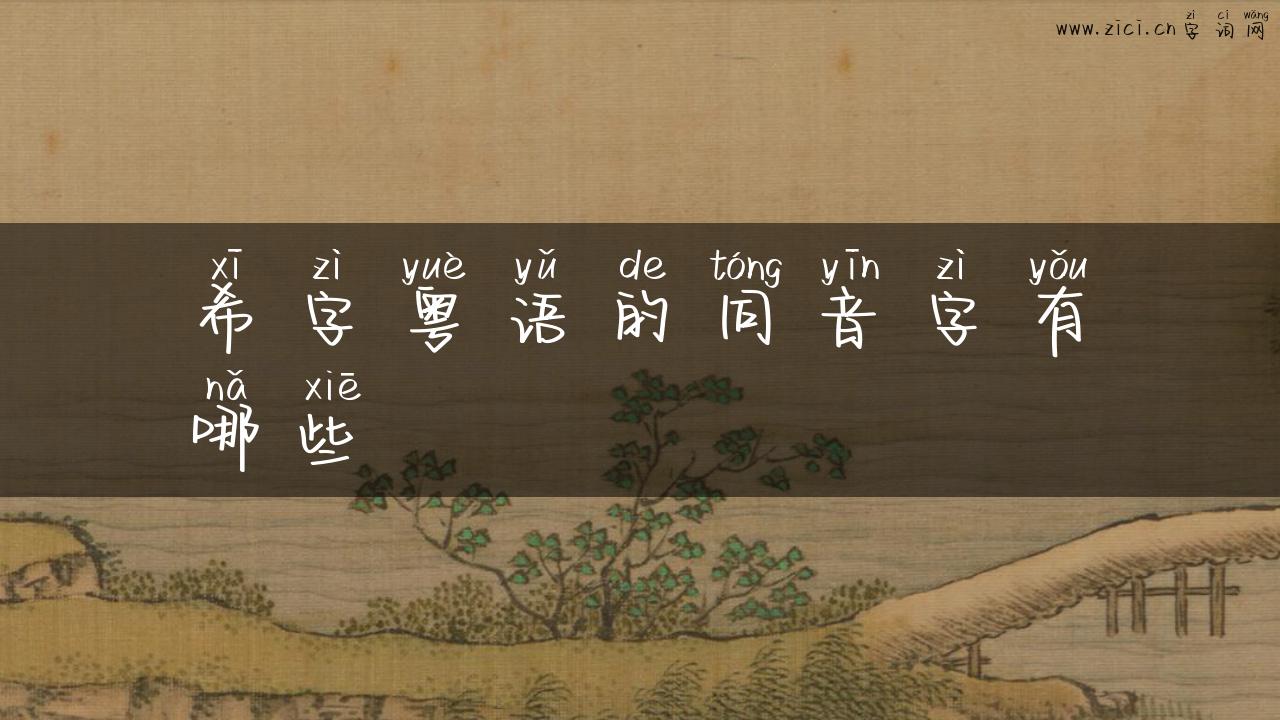 zì cí wǎng
www.zici.cn 字 词 网
xī zì yuè yǔ de tóng yīn zì yǒu
希 字 粤 语 的 同 音 字 有
nǎ xiē
哪 些